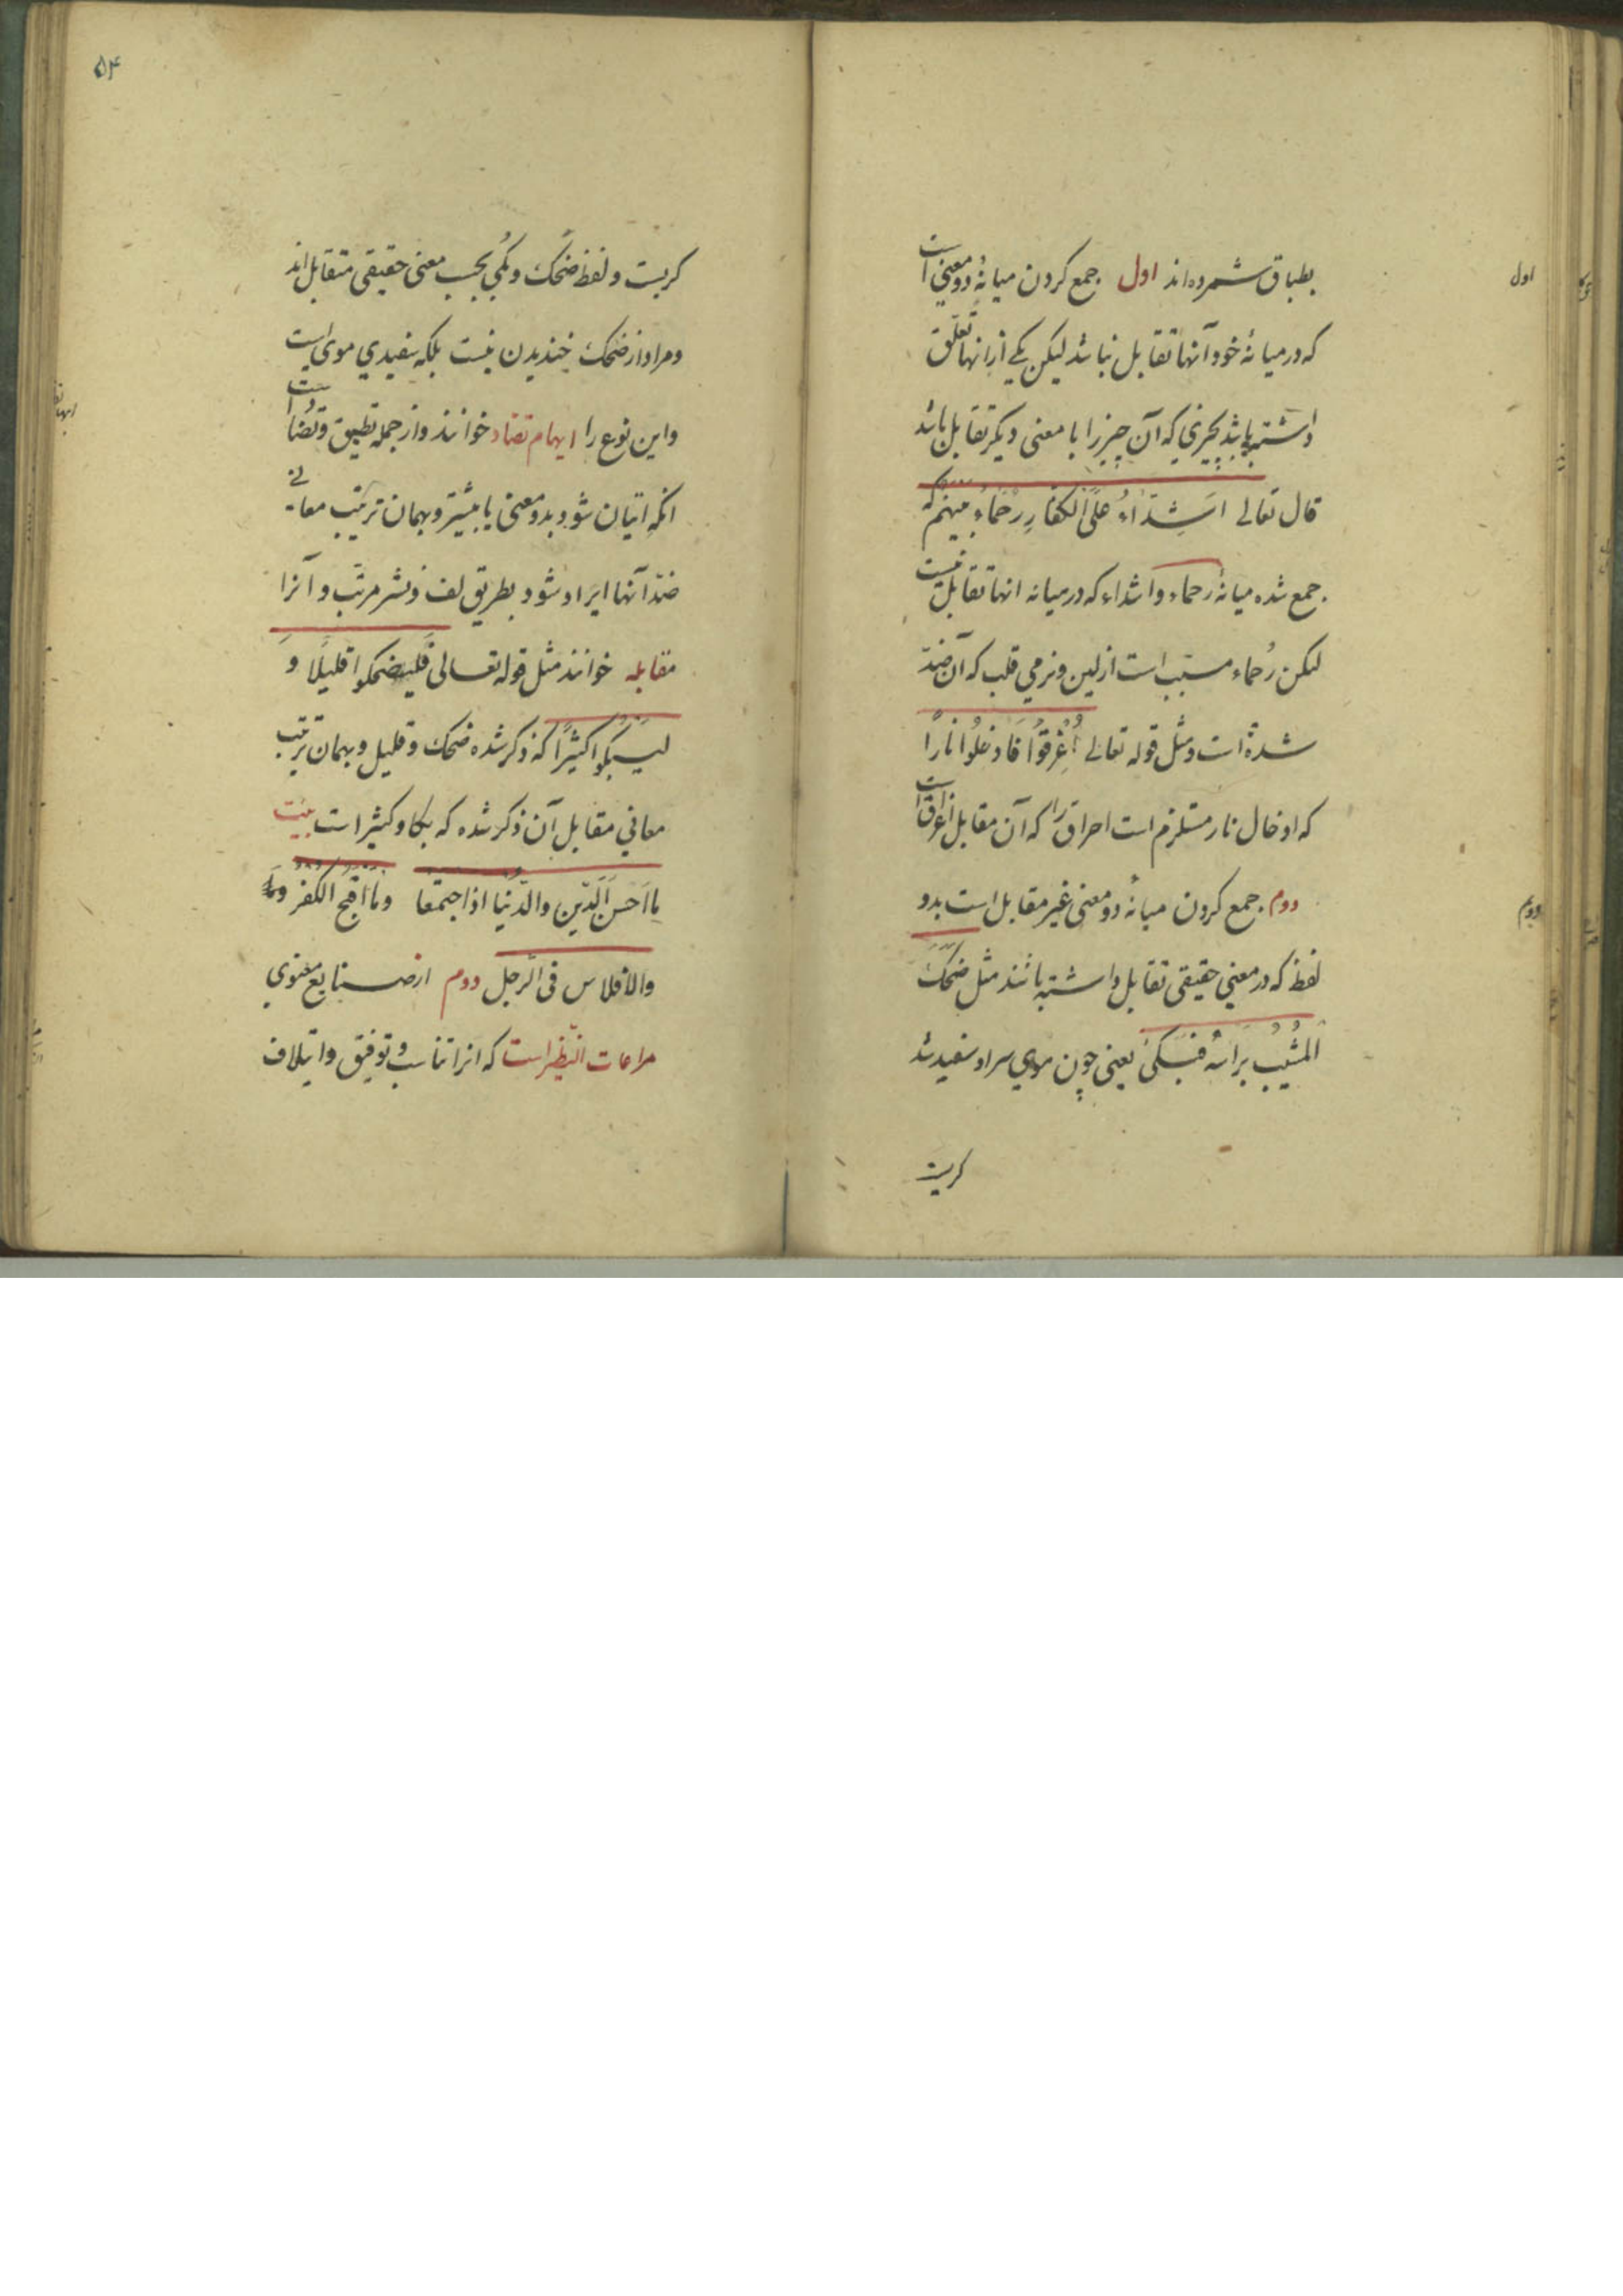 بطباق شمرده‌اند اول جمع کردن میانهٔ دو معنی است
که در میانهٔ خود آنها تقابل نباشد لیکن یکی از انها تعلق
داشته باشد بچیزی که آن چیز را با معنی دیکر تقابل باشد
قال تعالی اَشِدّاءُ عَلَی الکُفّارِ رُحَماءُ بَینَهُم که
جمع شده میانهٔ رحماء و اشداء که در میانه انها تقابل نیست
لیکن رُحماء مسبّب است از لین و نرمی قلب که آن ضدّ
شدة است و مثل قوله تعالی اُغْرِقُوا فَاُدخِلُوا نارًا
که ادخال نار مستلزم است احراق را که آن مقابل اغراق است
دوم جمع کردن میانهٔ دو معنی غیر مقابل است بدو
لفظ که در معنی حقیقی تقابل داشته باشند مثل ضَحِکَ
المَشیبُ بِرَاسِهٖ فَبَکیٰ یعنی چون موی سر او سفید شد
کریست
اول
دویم
۵۴
کریست و لفظ ضحک و بُکی بحسب معنی حقیقی متقابل‌اند
و مراد از ضحک خندیدن نیست بلکه سفیدی موی است
و این نوع را ایهام تضاد خوانند و از جمله تطبیق و تضاد است
انکه اتیان شود بدو معنی یا بیشتر و بهمان ترتیب معانی
ضدّ آنها ایراد شود بطریق لف و نشر مرتّب و آنرا
مقابله خوانند مثل قوله تعالی فَلیَضحکوا قلیلًا وَ
لیَبکوا کثیرًا که ذکر شده ضحک و قلیل و بهمان ترتیب
معانی مقابل آن ذکر شده که بکا و کثیر است بیت
ما اَحسَنَ الدّینَ والدُّنیا اذا اجتمعا وما اقبح الکفر
والافلاس فی الرجل دوم از صنایع معنوی
مراعات النّظیر است که انرا تناسب و توفیق و ایتلاف